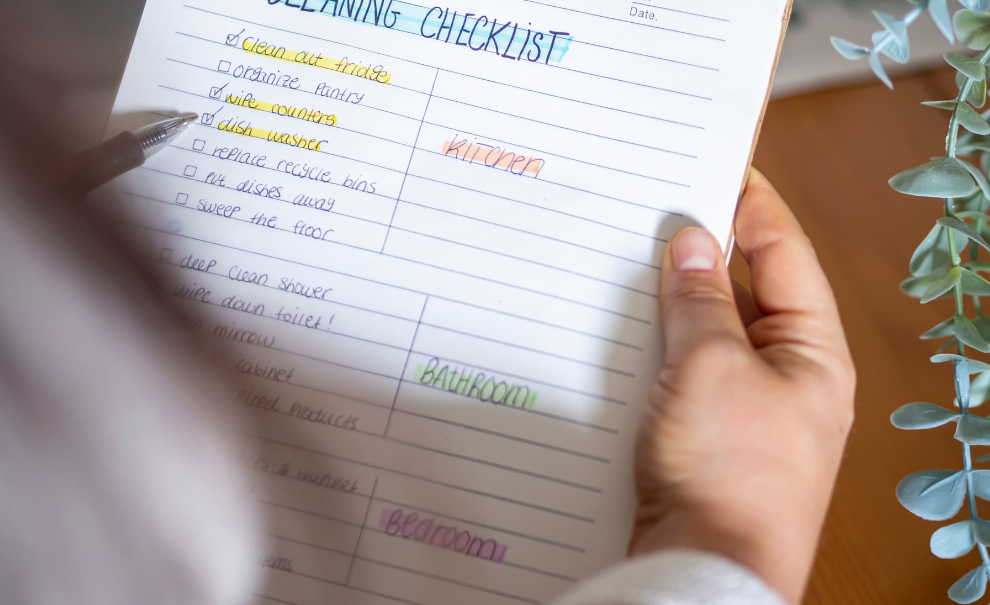 Date.
CLEANING CHECKLIST
clean out fridge
organize pantry
wipe counters
dish washer
replace recycle bins
put dishes away
sweep the floor
kitchen
deep clean shower
wipe down toilet!
mirrow
cabinet
products
BATHROOM
& blanket
Bedroom